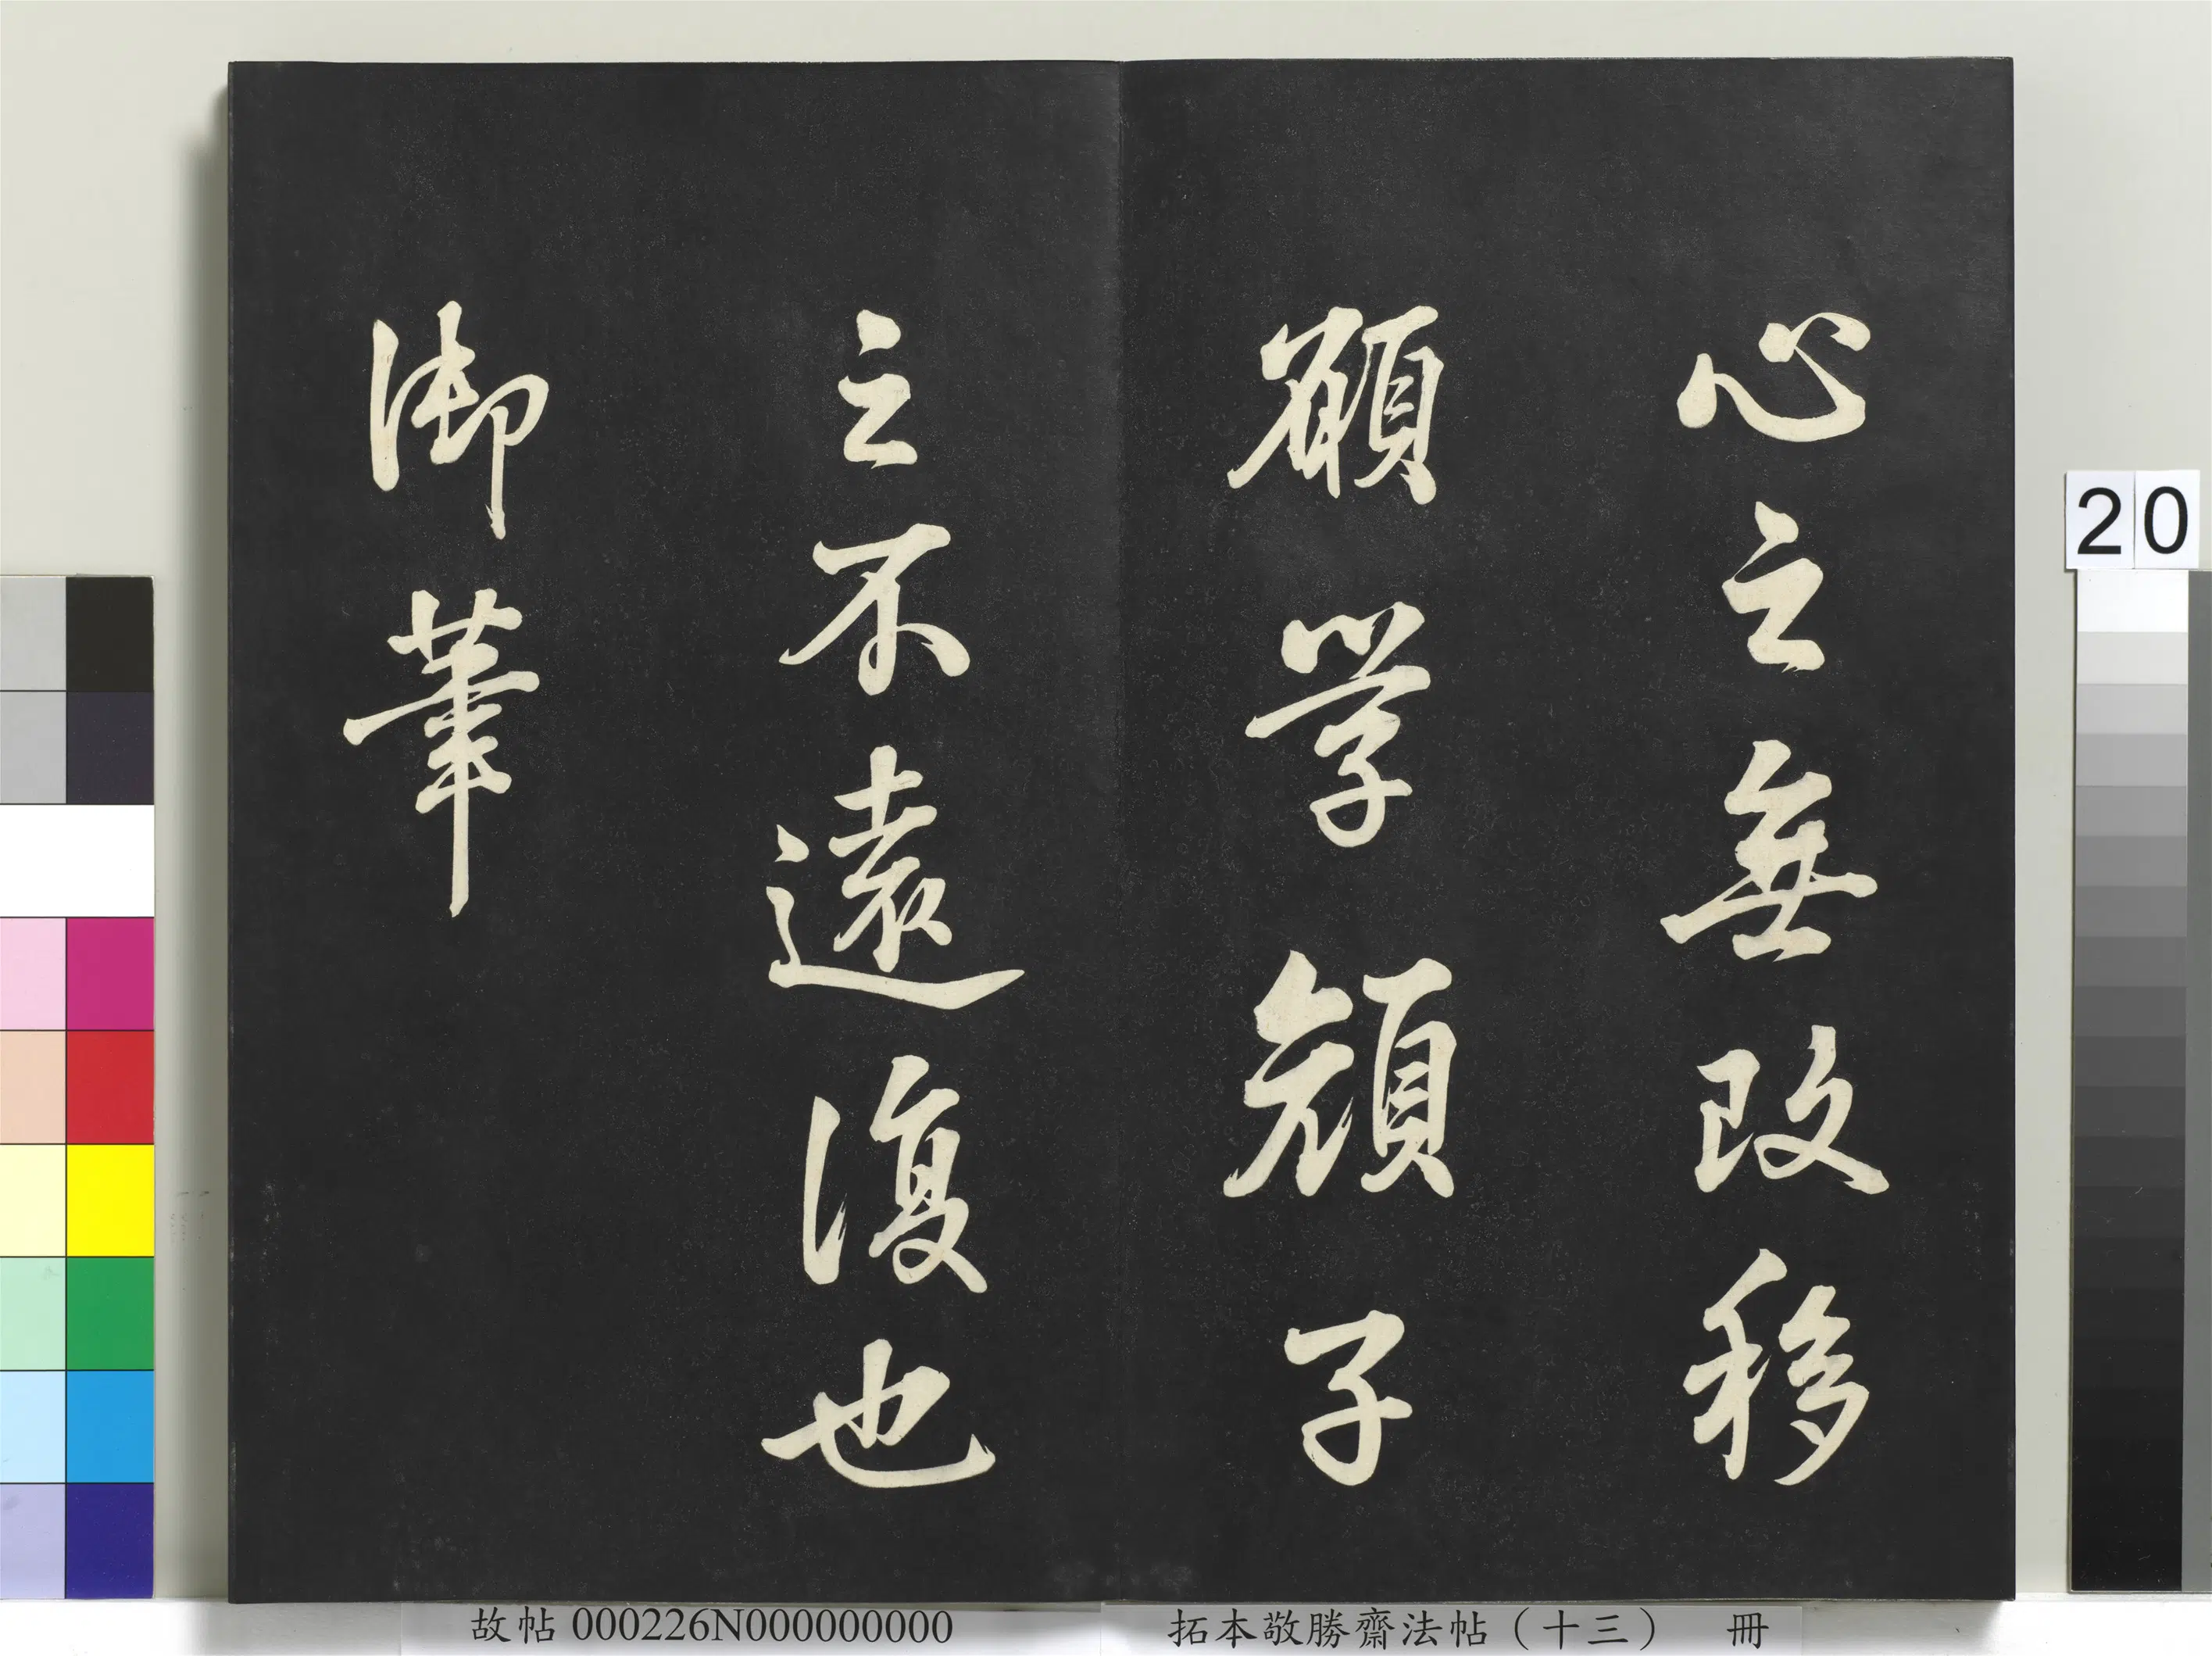 心之無改移
願學顏子
之不遠復也
御筆
20
故帖 000226N000000000
拓本敬勝齋法帖（十三） 冊